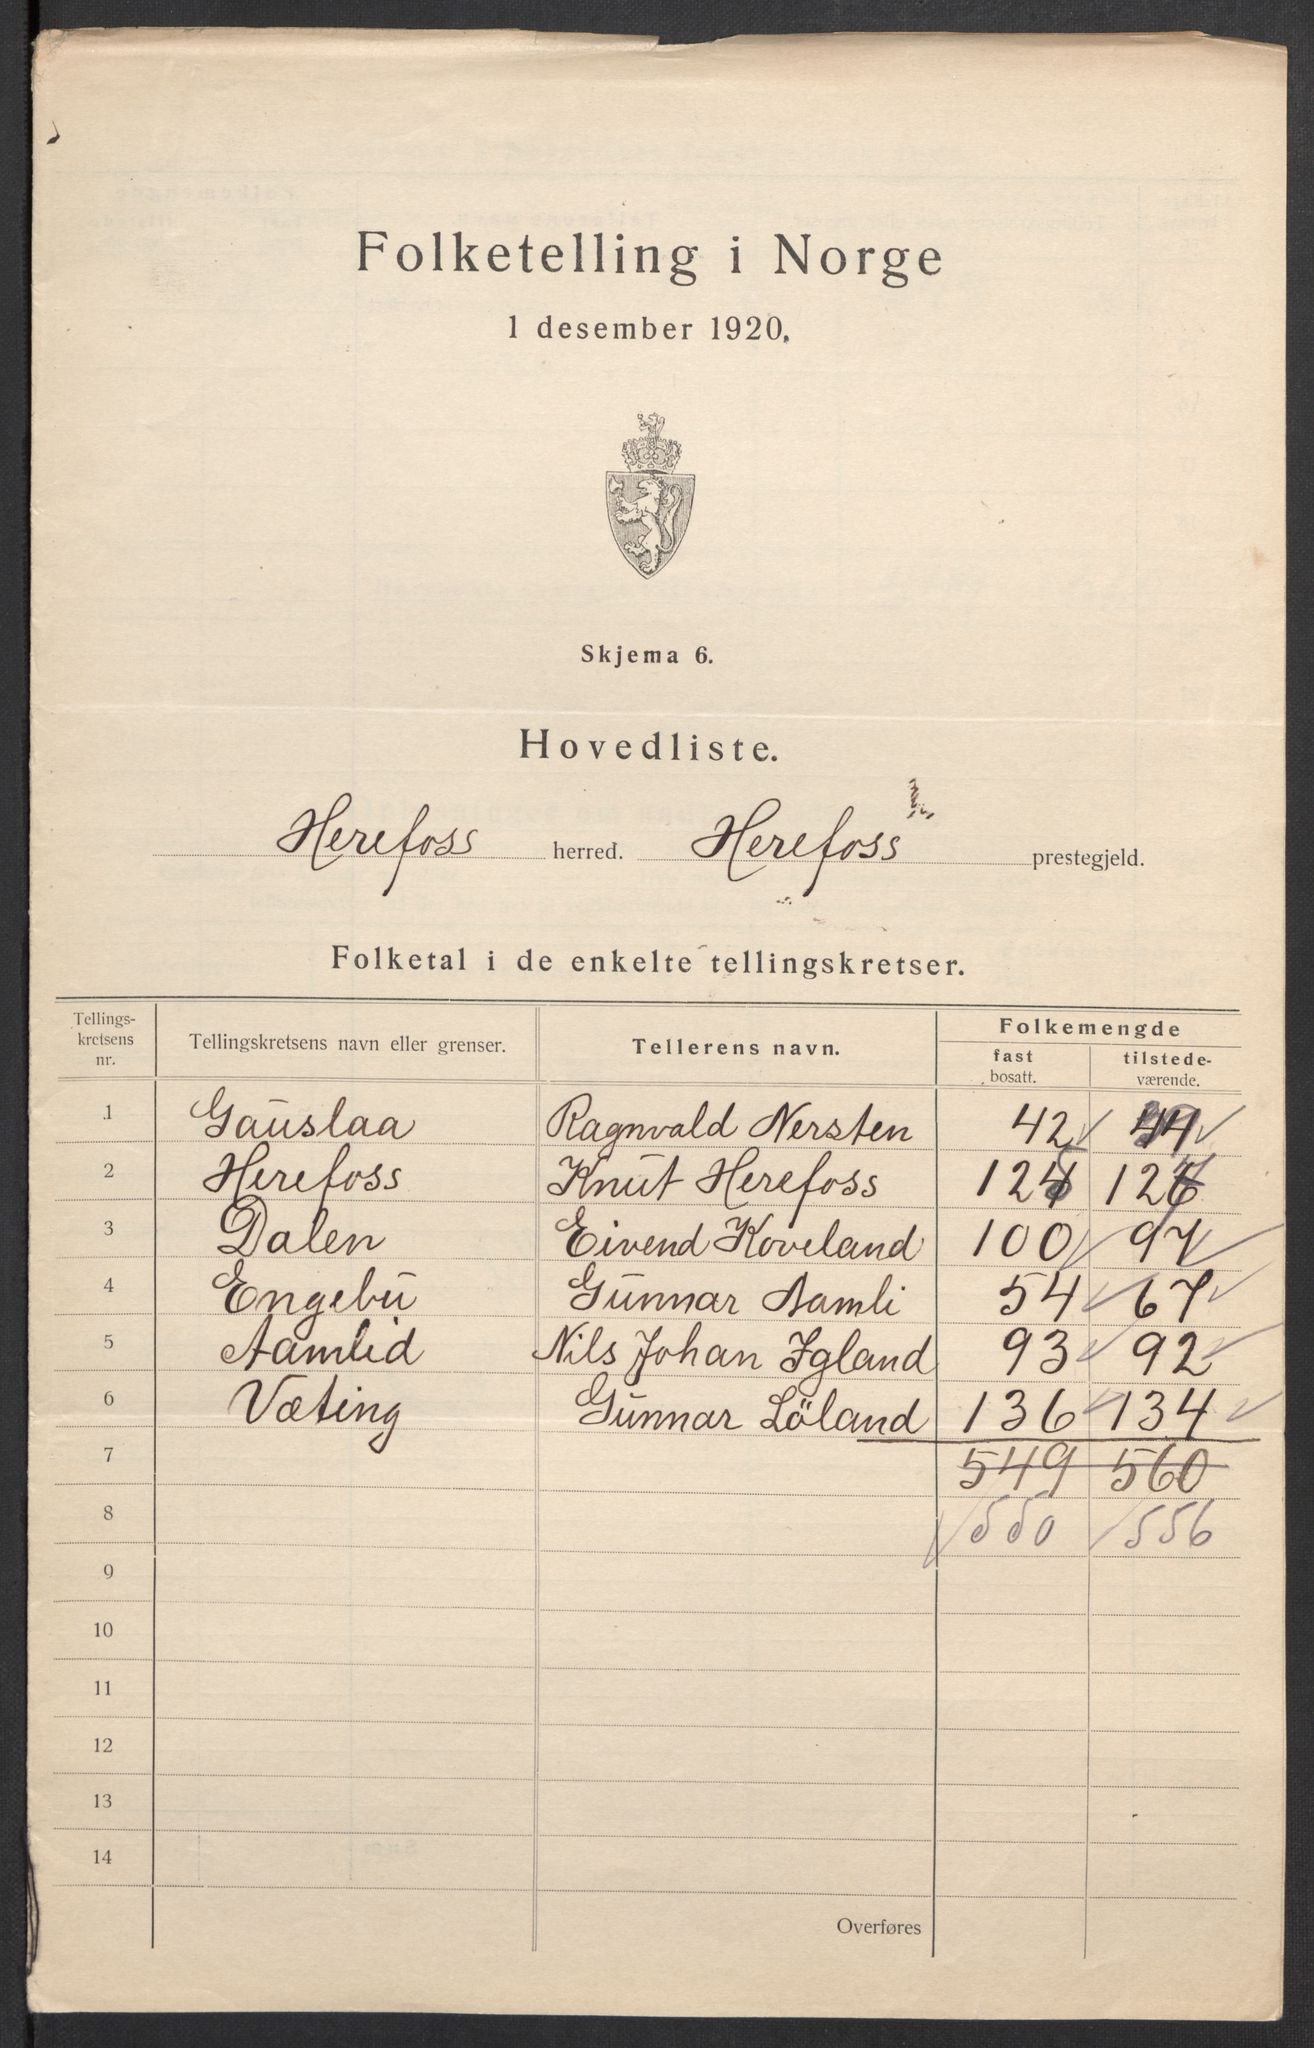 Folketelling i Norge
1 desember 1920.
Skjema 6.
Hovedliste.
Herefoss herred. Herefoss prestegjeld.
Folketal i de enkelte tellingskretser.
Tellings-
kretsens
nr.
Tellingskretsens navn eller grenser.
Tellerens navn.
Folkemengde
fast
bosatt.
tilstede-
værende.
1 Gauslaa Ragnvald Nersten 42
2 Herefoss Knut Herefoss 125
3 Dalen Eivend Koveland 100 97
4 Engebu Gunnar Aamli 54 67
5 Aamlid Nils Johan Igland 93 92
6 Væting Gunnar Löland 136 134
7 549 560
8 550 556
9
10
11
12
13
14
Overføres